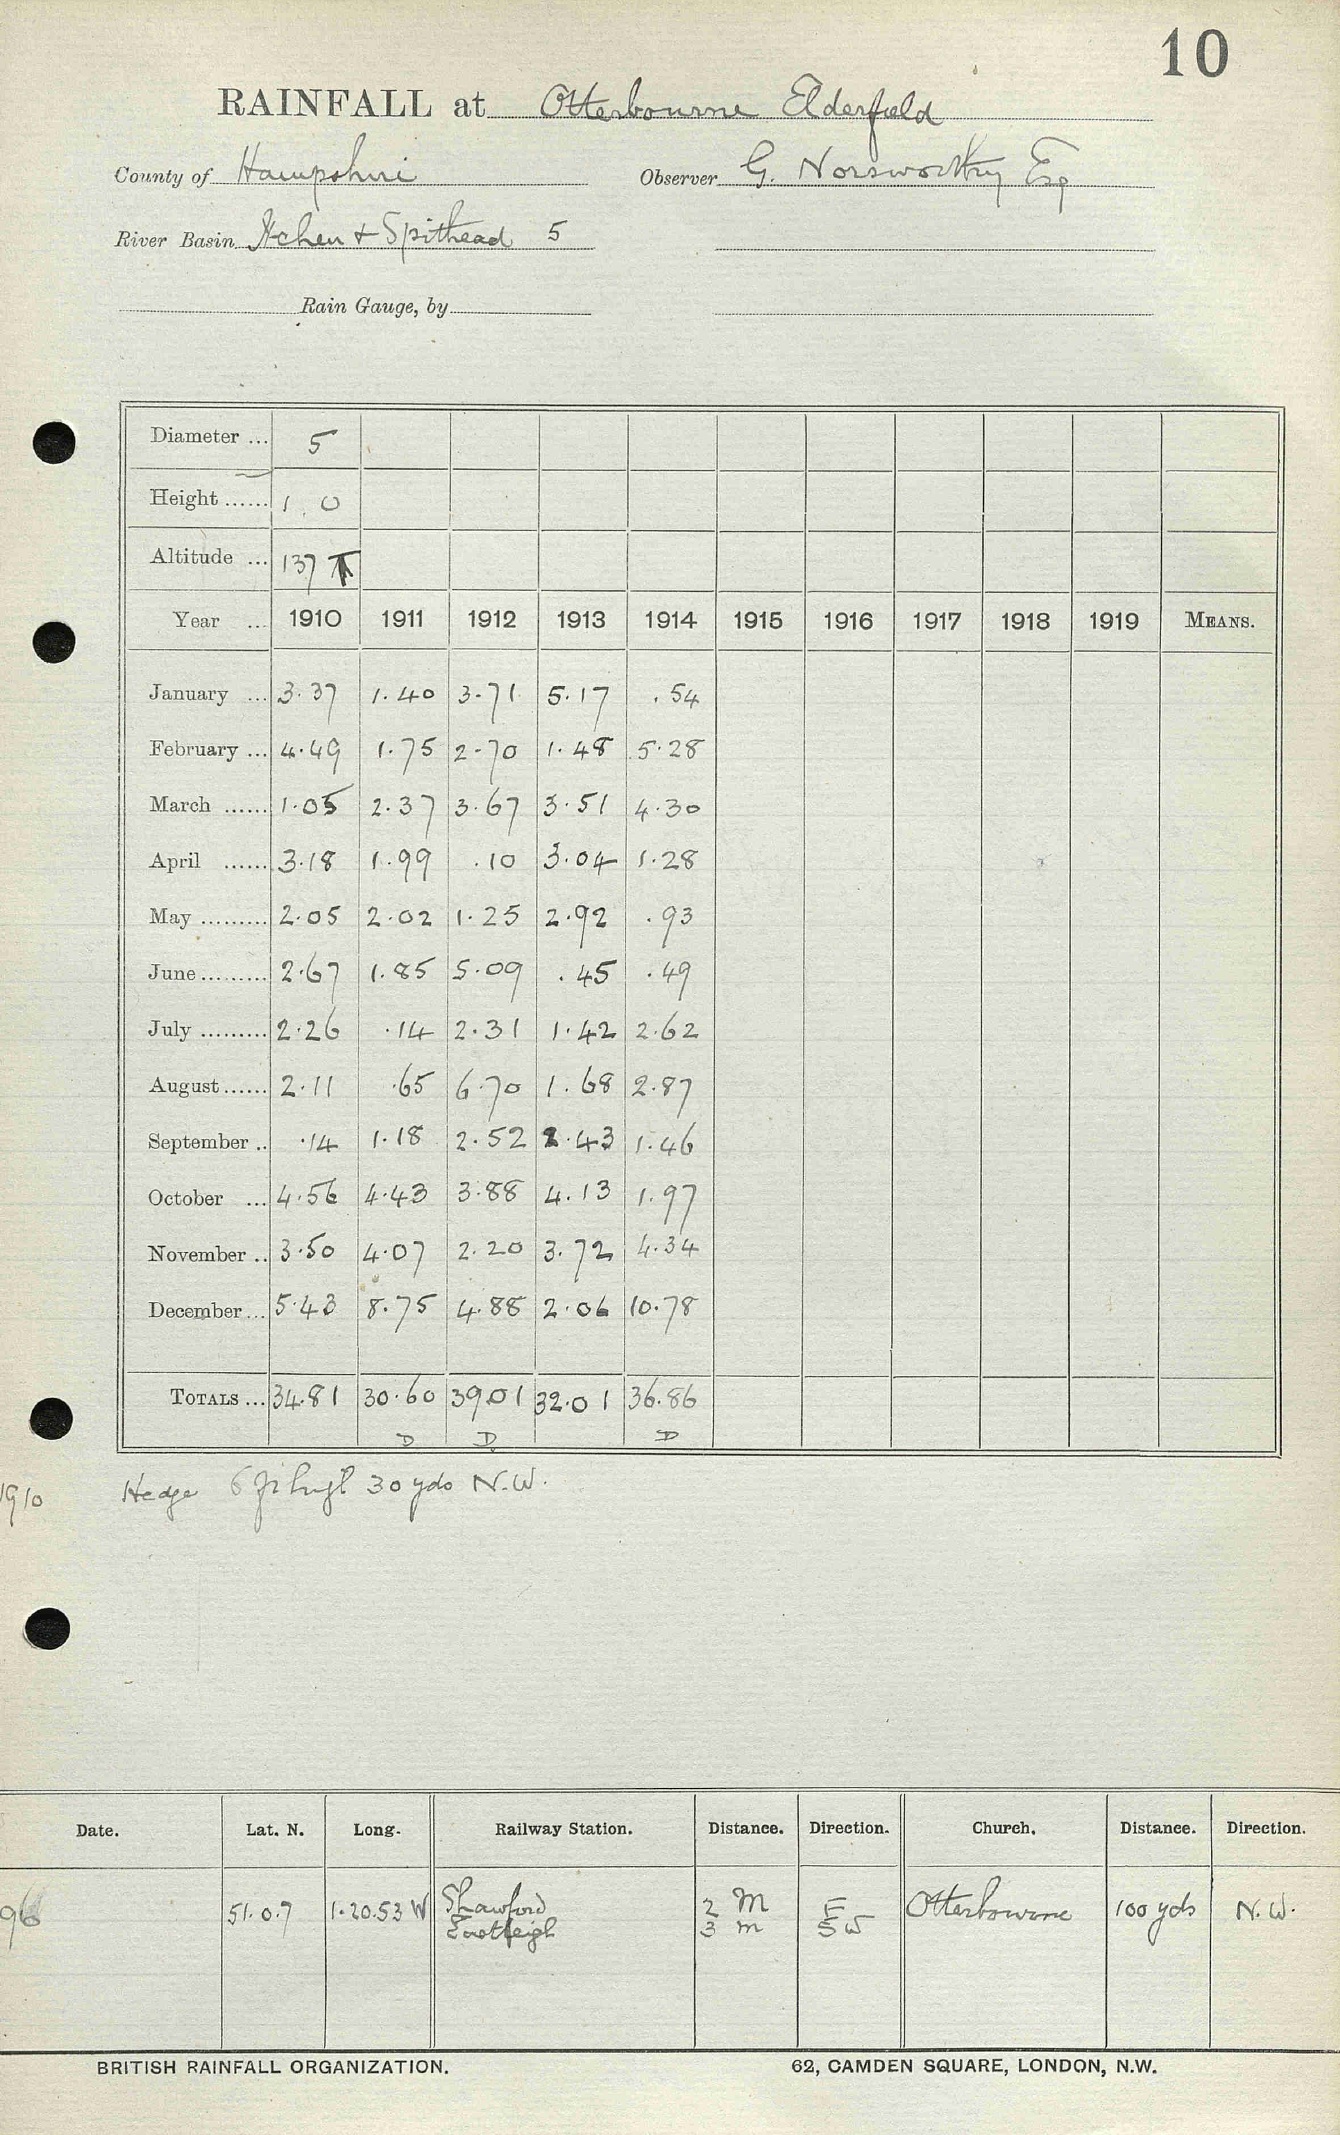 10
RAINFALL at Otterbourne Elderfield
County of Hampshire Observer G. Norsworthy Esq
River Basin Itchen & Spithead 5
Rain Gauge, by
Diameter ... 5
Height ...... 1. 0
Altitude ... 137 T
Year ... 1910 1911 1912 1913 1914 1915 1916 1917 1918 1919 MEANS.
January ... 3.37 1.40 3.71 5.17 .54
February ... 4.49 1.75 2.70 1.48 5.28
March ...... 1.05 2.37 3.67 3.51 4.30
April ...... 3.18 1.99 .10 3.04 1.28
May ......... 2.05 2.02 1.25 2.92 .93
June ......... 2.67 1.85 5.09 .45 .49
July ......... 2.26 .14 2.31 1.42 2.62
August ...... 2.11 .65 6.70 1.68 2.87
September .. .14 1.18 2.52 2.43 1.46
October ... 4.56 4.43 3.88 4.13 1.97
November .. 3.50 4.07 2.20 3.72 4.34
December ... 5.43 8.75 4.88 2.06 10.78
TOTALS ... 34.81 30.60 39.01 32.01 36.86
D D D
1910 Hedge 6 ft high 30 yds N.W.
Date. Lat. N. Long. Railway Station. Distance. Direction. Church. Distance. Direction.
96 51.0.7 1.20.53 W Shawford 2 M Otterbourne 100 yds N.W.
Eastleigh 3 m SW
BRITISH RAINFALL ORGANIZATION. 62, CAMDEN SQUARE, LONDON, N.W.